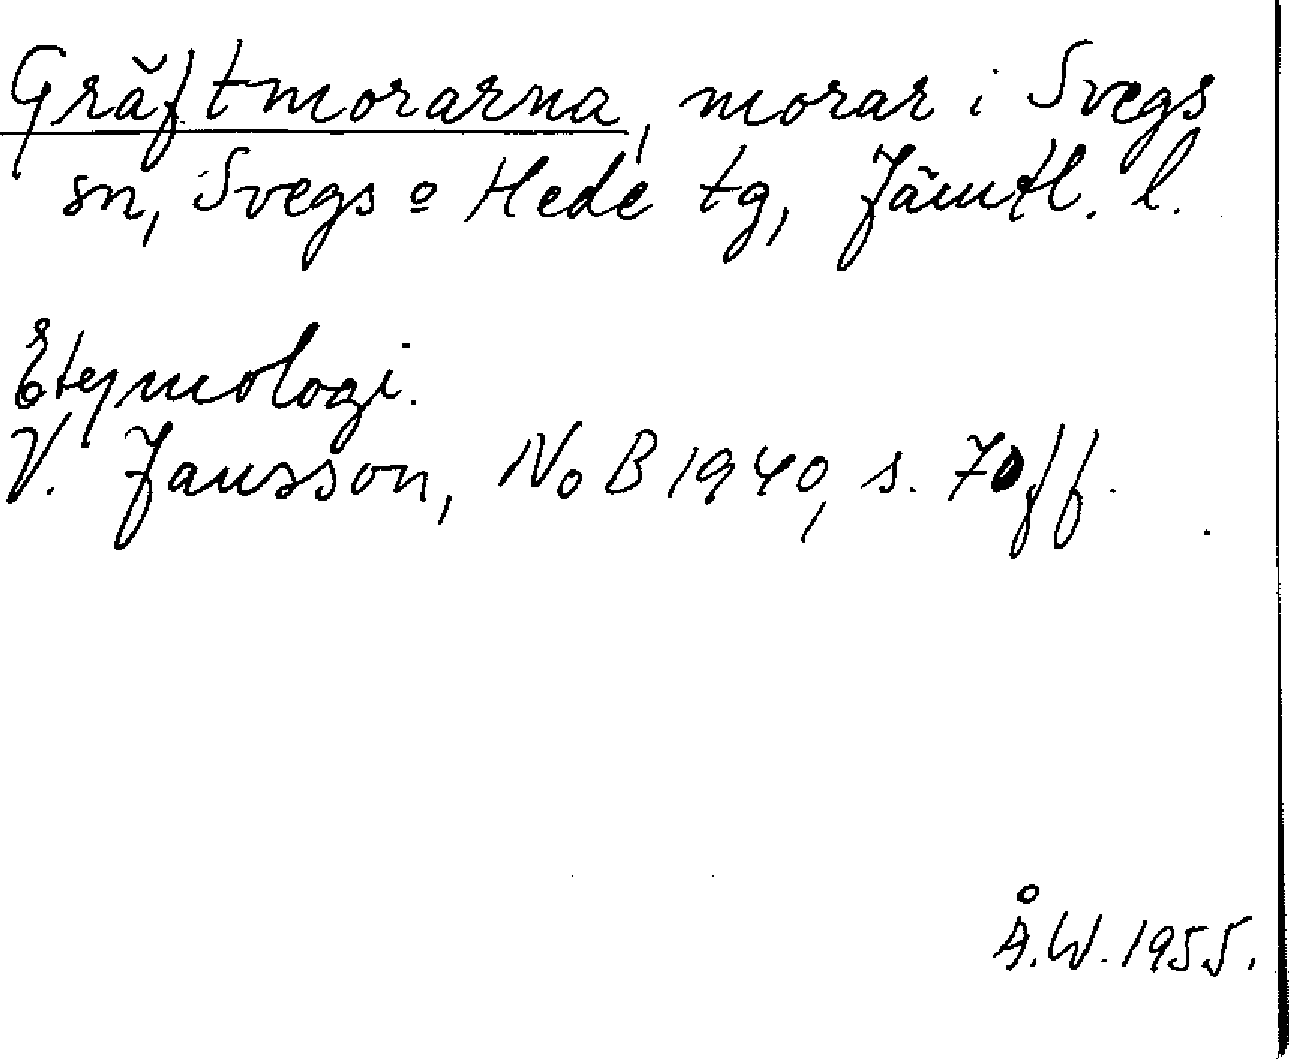 Gräftmorarna, morar i Svegs
sn, Svegs o Hede tg, Jämtl. l.
Etymologi.
V. Jansson, NoB 1940, s. 70 ff.
Å.W. 1955.